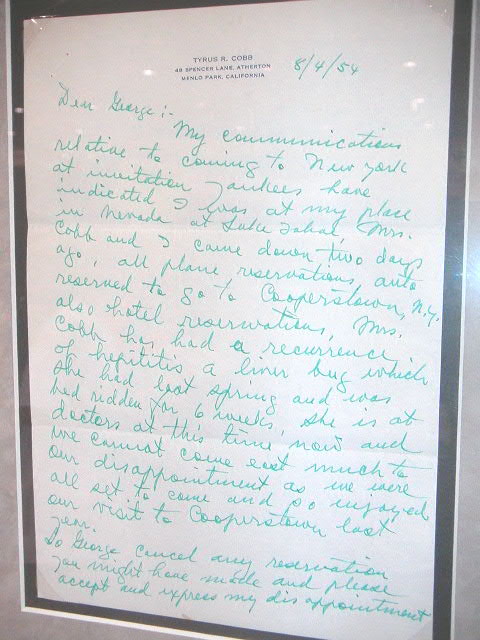 TYRUS R. COBB
48 SPENCER LANE, ATHERTON
MENLO PARK, CALIFORNIA
8/4/54
Dear George:-
My communications
relative to coming to New York
at invitation Yankees have
indicated I was at my place
in Nevada at Lake Tahoe, Mrs.
Cobb and I came down two days
ago, all plane reservations, auto
reserved to go to Cooperstown, N.Y.
also hotel reservations, Mrs.
Cobb has had a recurrence,
of hepititis a liver bug which
she had last spring and was
bed ridden for 6 weeks, she is at
doctors at this time now and
we cannot come east much to
our disappointment as we were
all set to come and so enjoyed
our visit to Cooperstown last
year.
So George cancel any reservation
you might have made and please
accept and express my disappointment